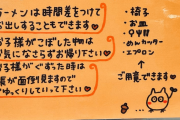 ラーメンは時間差をつけて
お出しすることもできます
お子様がこぼした物は
お気になさらずお帰り下さい
お子様がぐずった時は
員が面倒見ますので
ゆっくりしていって下さい
・椅子
・お皿
・めんカッター
・エプロン
ご用意できます